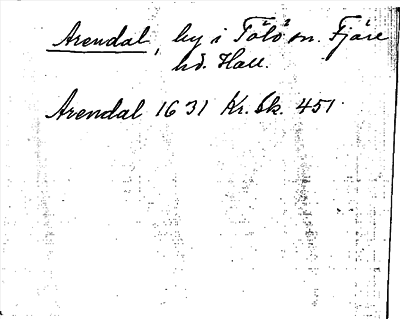 Arendal, by i Tölö sn. Fjäre
hd. Hall.
Arendal 1631 Kr. bk. 451